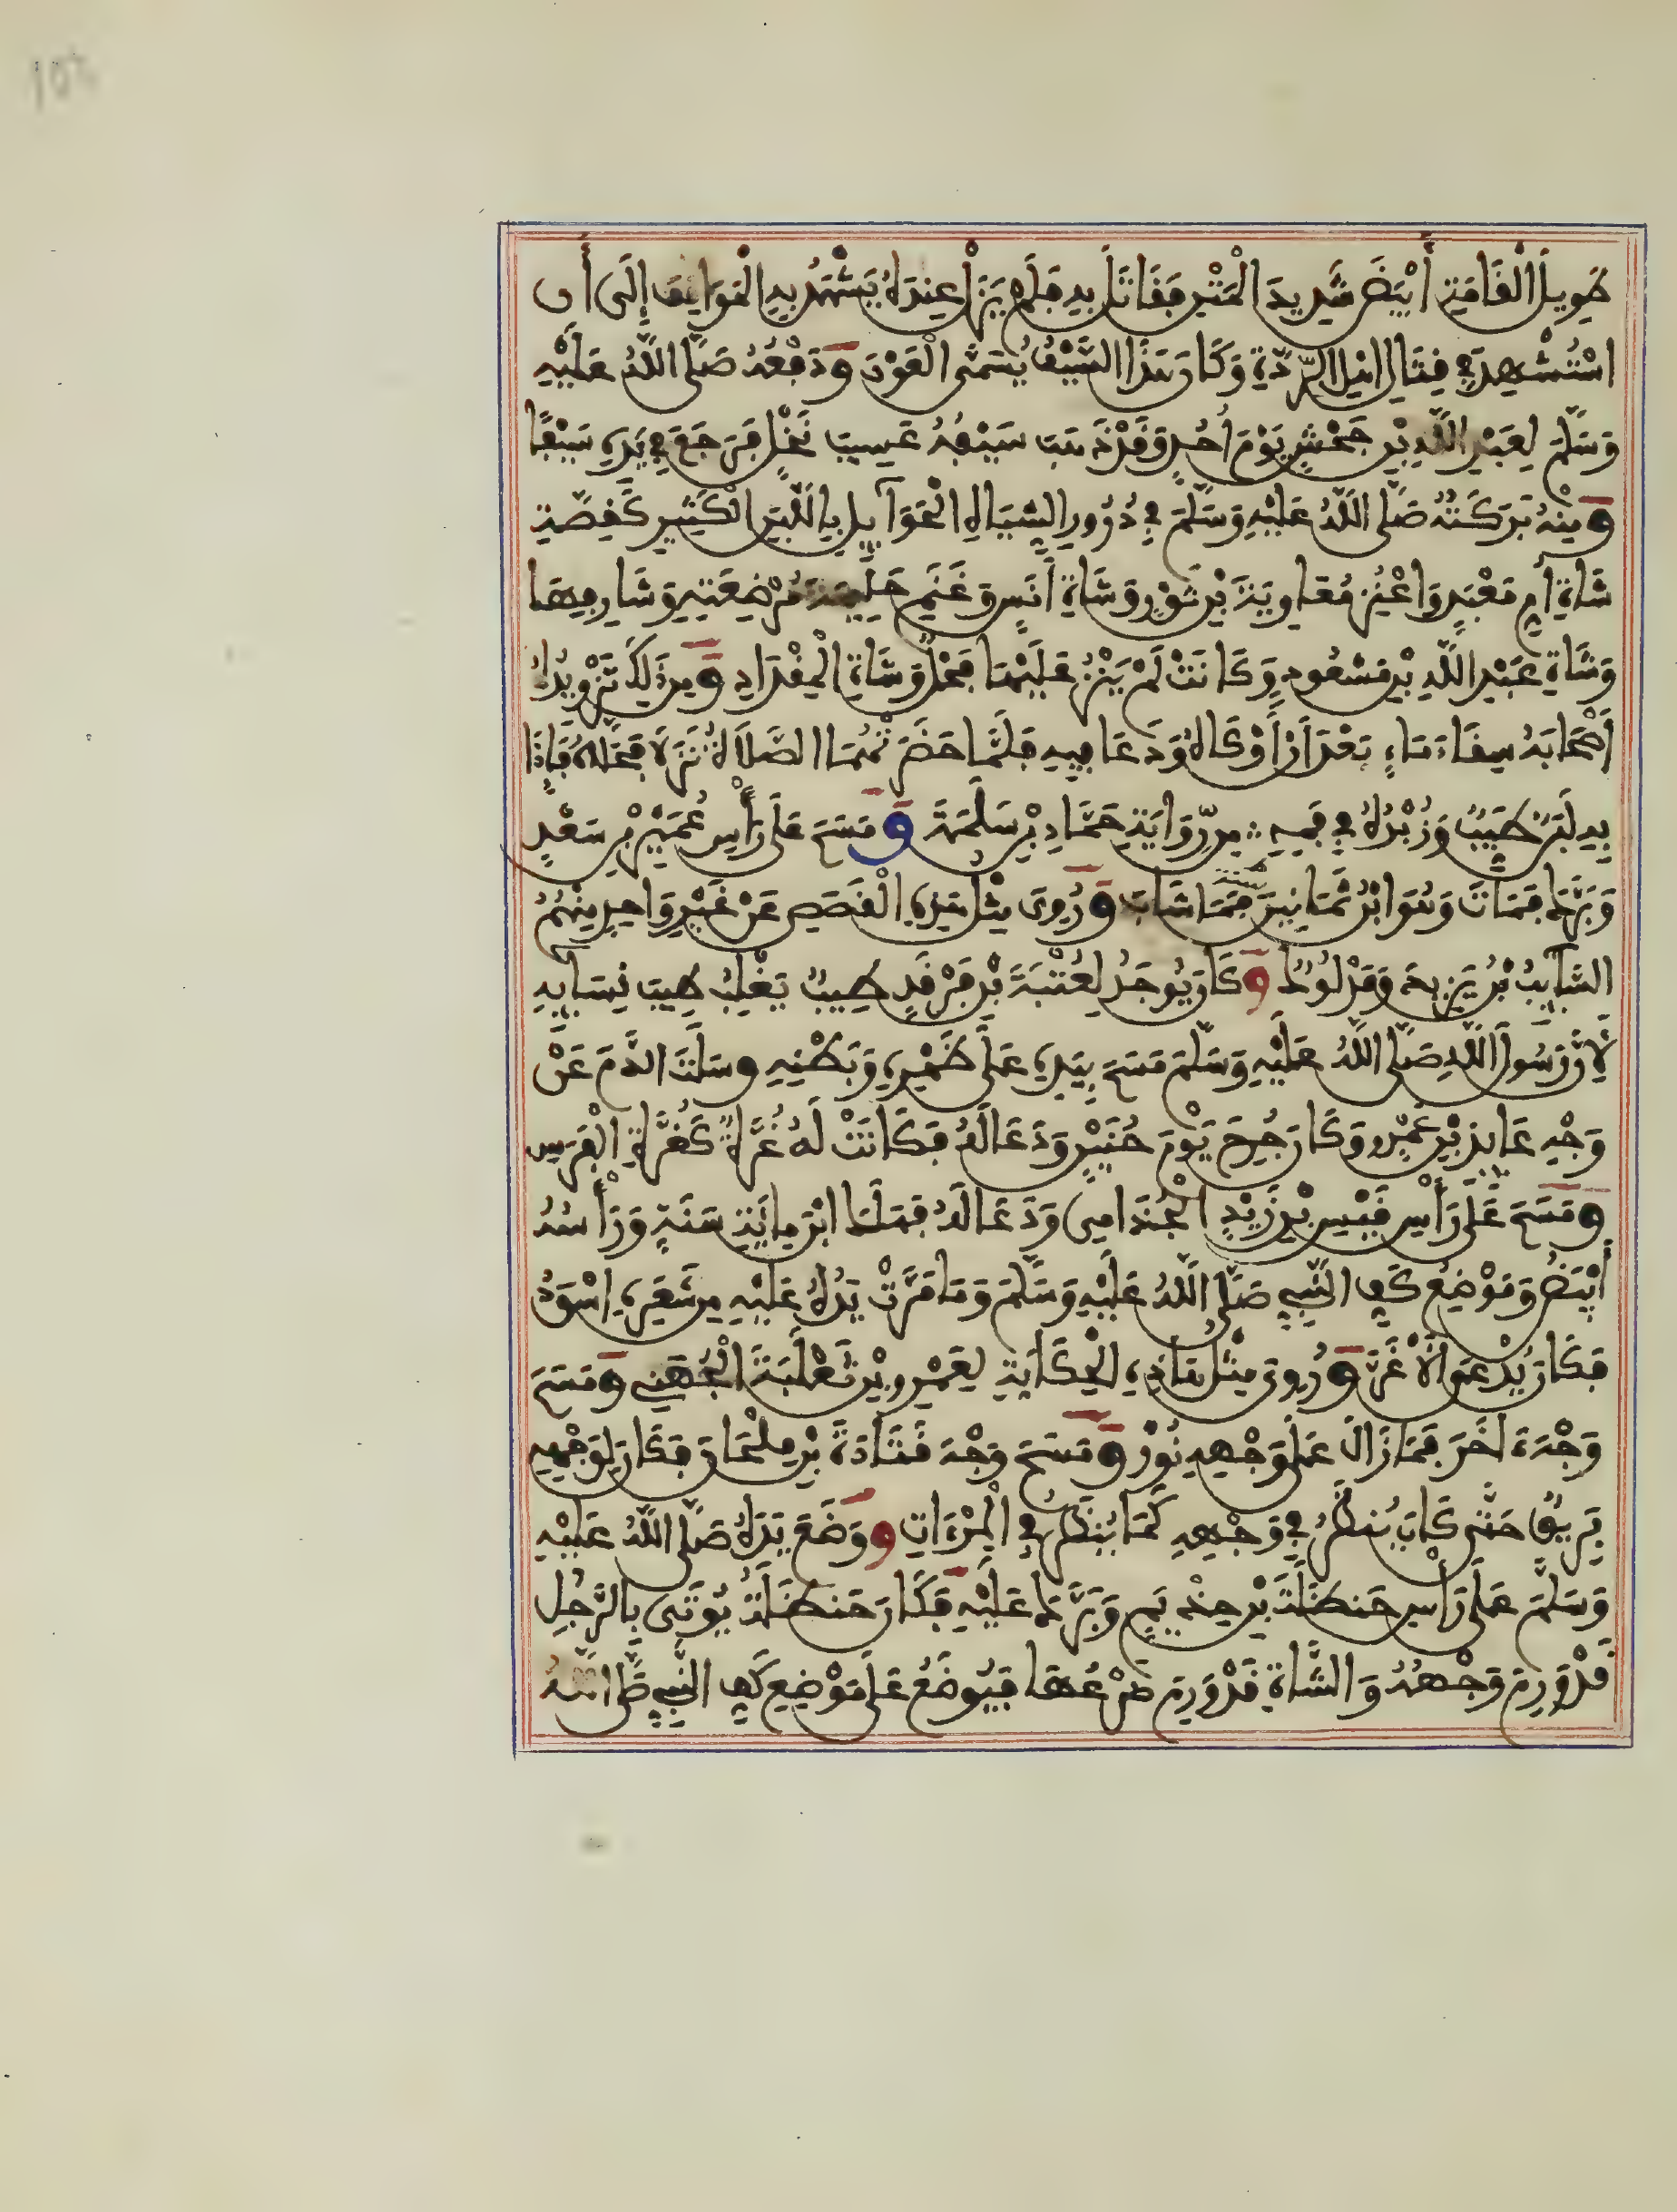 طَوِيلَ الْقَامَةِ أَبْيَضَ شَدِيدَ الْمَتْنِ فَقَاتَلَ بِهِ فَلَمْ يَزَلْ عِنْدَهُ يَشْهَدُ بِهِ الْمَوَاقِفَ إِلَى أَن
اسْتُشْهِدَ فِي قِتَالِ اهْلِ الرِّدَّةِ وَكَانَ هَذَا السَّيْفُ يُسَمَّى الْعَوْنَ وَدَفْعُهُ صَلَّى اللَّهُ عَلَيْهِ
وَسَلَّمَ لِعَبْدِ اللَّهِ بْنِ جَحْشٍ يَوْمَ أُحُدٍ وَقَدْ ذَهَبَ سَيْفُهُ عَسِيبَ نَخْلٍ فَرَجَعَ فِي يَدِهِ سَيْفًا
وَمِنْهُ بَرَكَتُهُ صَلَّى اللَّهُ عَلَيْهِ وَسَلَّمَ فِي دُرُورِ الشِّيَاهِ الْحَوَآيِلِ بِاللَّبَنِ الْكَثِيرِ كَقِصَّةِ
شَاةِ أُمِّ مَعْبَدٍ وَاعْنُزِ مُعَاوِيَةَ بْنِ ثَوْرٍ وَشَاةِ أَنَسٍ وَغَنَمِ حَلِيمَةَ مُرْضِعَتِهِ وَشَارِفِهَا
وَشَاةِ عَبْدِ اللَّهِ بْنِ مَسْعُودٍ وَكَانَتْ لَمْ يَنْزُ عَلَيْهَا فَحْلٌ وَشَاةِ الْمِقْدَادِ وَمِن ذَلِكَ تَزْوِيدُهُ
أَصْحَابَهُ سِقَاءَ مَاءٍ بَعْدَ أَنْ أَوْكَاهُ وَدَعَا فِيهِ فَلَمَّا حَضَرَتْهُمَا الصَّلَاةُ نَزَلَا فَحَلَّاهُ فَإِذَا
بِهِ لَبَنٌ طَيِّبٌ وَزُبْدَةٌ فِي فَمِهِ مِن رِّوَايَةِ حَمَّادِ بْنِ سَلَمَةَ وَمَسَحَ عَلَى رَأْسِ عُمَيْرِ بْنِ سَعْدٍ
وَبَرَّكَ فَمَاتَ وَهُوَ ابْنُ ثَمَانِينَ سنة فَمَا شَابَ وَرُوِيَ مِثْلُ هَذِهِ الْقَصَصِ عَنْ غَيْرِ وَاحِدٍ مِنْهُمُ
السَّآيِبُ بْنُ يَزِيدَ وَمَدْلُوكٌ وَكَانَ يُوجَدُ لِعُتْبَةَ بْنِ فَرْقَدٍ طِيبٌ يَغْلِبُ طِيبَ نِسَايِهِ
لِأَنَّ رَسُولَ اللَّهِ صَلَّى اللَّهُ عَلَيْهِ وَسَلَّمَ مَسَحَ بِيَدِهِ عَلَى ظَهْرِهِ وَبَطْنِهِ وَسَلَتَ الدَّمَ عَنْ
وَجْهِ عَايِذِ بْنِ عَمْرٍو وَكَانَ جُرِحَ يَوْمَ حُنَيْنٍ وَدَعَا لَهُ فَكَانَتْ لَهُ غُرَّةٌ كَغُرَّةِ الْفَرَسِ
وَمَسَحَ عَلَى رَأْسِ قَيْسِ بْنِ زَيْدٍ الْجُذَامِي وَدَعَا لَهُ فَهَلَكَ ابْنَ مِايَةِ سَنَةٍ وَرَأْسُهُ
أَبْيَضُ وَمَوْضِعُ كَفِّ النَّبِيِّ صَلَّى اللَّهُ عَلَيْهِ وَسَلَّمَ وَمَا مَرَّتْ يَدُهُ عَلَيْهِ مِن شَعَرِهِ اسْوَدُ
فَكَانَ يُدْعَى الْأَغَرَّ وَرُوِيَ مِثْلُ هَاذِهِ الْحِكَايَةِ لِعَمْرِو بْنِ ثَعْلَبَةَ الْجُهَنِي وَمَسَحَ
وَجْهَ ءَاخَرَ فَمَا زَالَ عَلَى وَجْهِهِ نُورٌ وَمَسَحَ وَجْهَ قَتَادَةَ بْنِ مِلْحَانَ فَكَانَ لِوَجْهِهِ
بَرِيقٌ حَتَّى كَانَ يُنظَرُ فِي وَجْهِهِ كَمَا يُنظَرُ فِي الْمِرْءَاتِ وَوَضَعَ يَدَهُ صَلَّى اللَّهُ عَلَيْهِ
وَسَلَّمَ عَلَى رَأْسِ حَنظَلَةَ بْنِ حِذْيَمٍ وَبَرَّكَ عَلَيْهِ فَكَانَ حَنظَلَةُ يُوتَى بِالرَّجُلِ
قَدْ وَرِمَ وَجْهُهُ وَالشَّاةِ قَدْ وَرِمَ ضَرْعُهَا فَيُوضَعُ عَلَى مَوْضِعِ كَفِّ النَّبِيِّ صَلَّى اللَّهُ